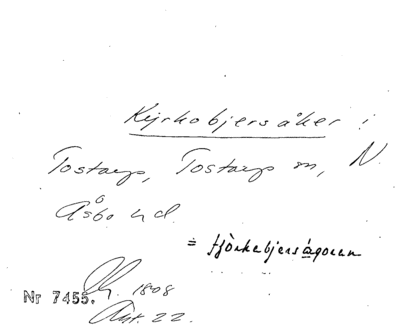 Kyrkobjersåker i
Tostarp, Tostarp sn, N.
Åsbo hd.
= Hjörkebjersågoran
1808
Nr 7455.
Akt. 22.